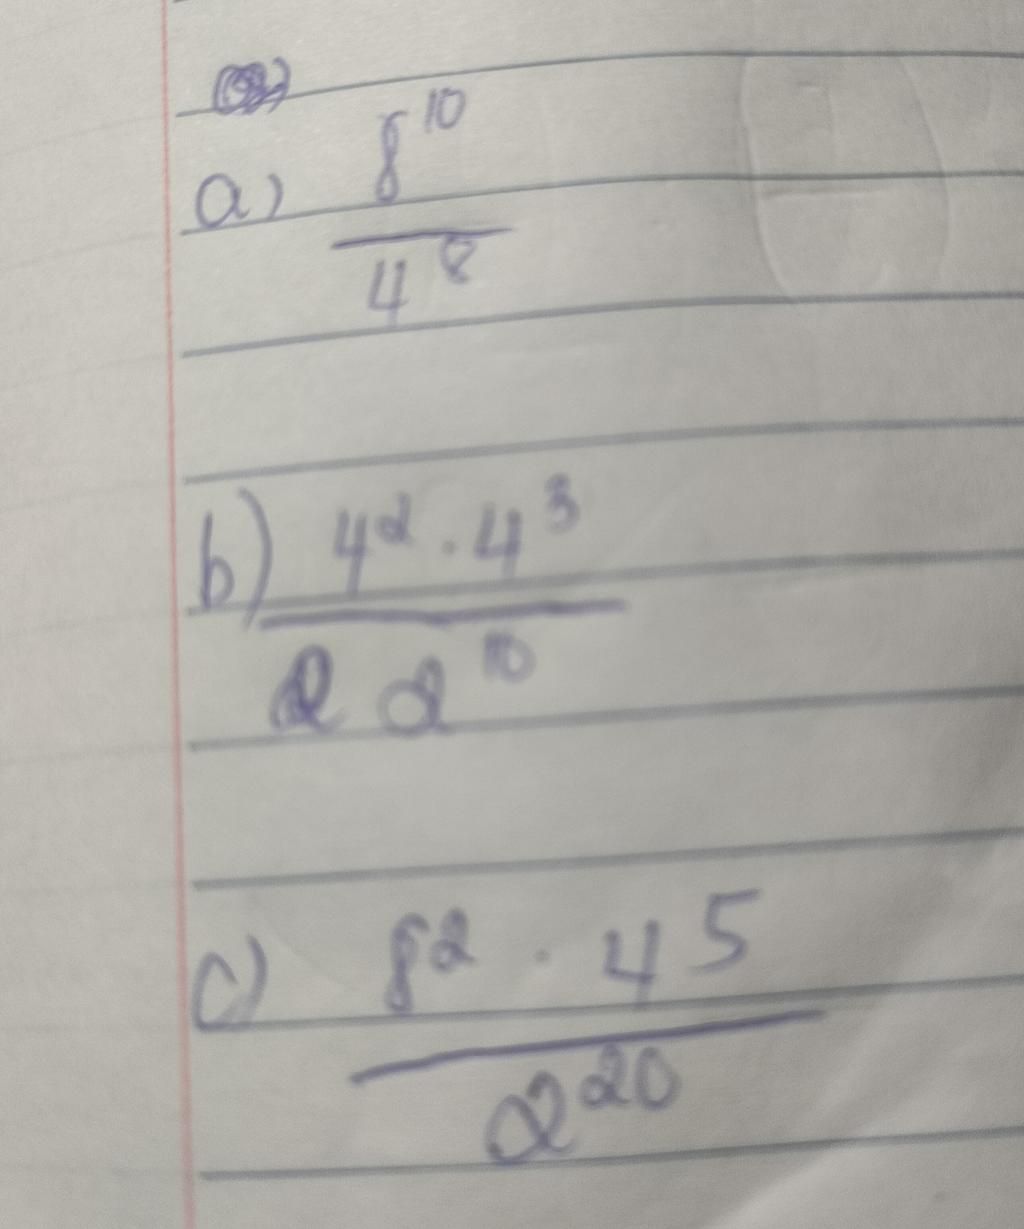 a) 8¹⁰
4⁸
b) 4² · 4³
2 2¹⁰
c) 8² · 4⁵
2²⁰